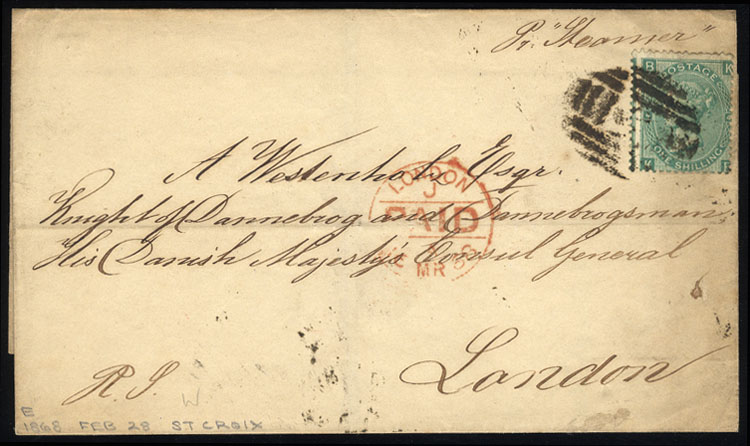 Pr. "Steamer"
B K
POSTAGE
ONE SHILLING
K B
A Westenholz Esqr.
LONDON
J
PAID
MR
Knight of Dannebrog and Dannebrogsman.
His Danish Majesty's Consul General
London
E
1868 FEB 28 ST CROIX
W